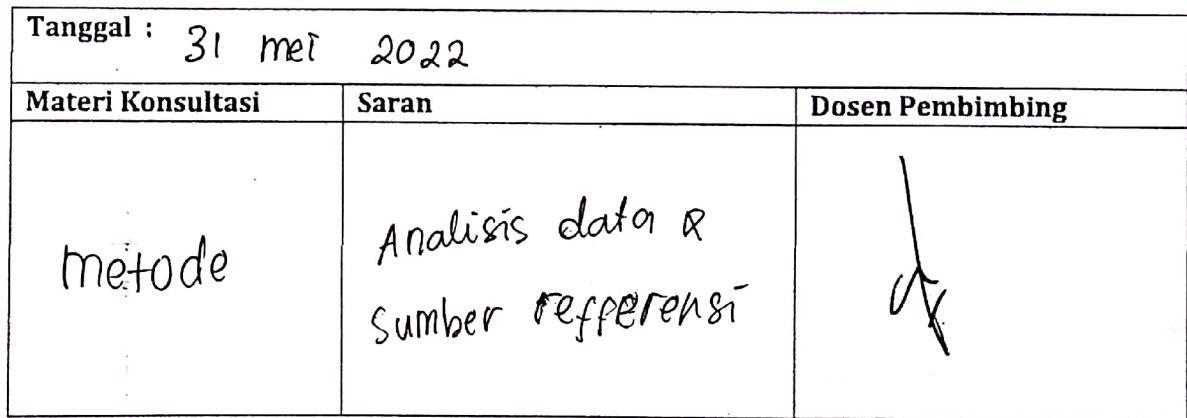 Tanggal : 31 mei 2022
Materi Konsultasi Saran Dosen Pembimbing
metode
Analisis data &
sumber refferensi